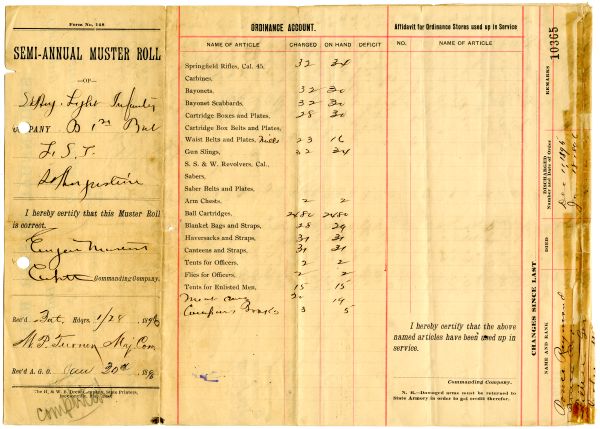 Form No. 148
SEMI-ANNUAL MUSTER ROLL
—OF—
St Aug. Light Infantry
COMPANY B 1st Bat
F. S. T.
St Augustine
I hereby certify that this Muster Roll
is correct.
Capt Commanding Company.
Rec'd Bat. Hdqrs. 1/28 1896
W. P. Turner Maj Com
Rec'd A. G. O. Jan 30th 1896
ORDNANCE ACCOUNT.
NAME OF ARTICLE CHARGED ON HAND DEFICIT
Springfield Rifles, Cal. 45, 32 34
Carbines,
Bayonets, 32 30
Bayonet Scabbards, 32 30
Cartridge Boxes and Plates, 28 30
Cartridge Box Belts and Plates,
Waist Belts and Plates, 23 16
Gun Slings, 32 34
S. S. & W. Revolvers, Cal.,
Sabers,
Saber Belts and Plates,
Arm Chests, 2 2
Ball Cartridges, 2480 2480
Blanket Bags and Straps, 28 29
Haversacks and Straps, 31 31
Canteens and Straps, 31 31
Tents for Officers, 2 2
Flies for Officers, 2 2
Tents for Enlisted Men, 15 15
Meat cans 20 19
3 5
Affidavit for Ordnance Stores used up in Service
NO. NAME OF ARTICLE
I hereby certify that the above
named articles have been used up in
service.
Commanding Company.
N. B.—Damaged arms must be returned to
State Armory in order to get credit therefor.
CHANGES SINCE LAST
NAME AND RANK DIED DISCHARGED REMARKS
Number and Date of Order
10365